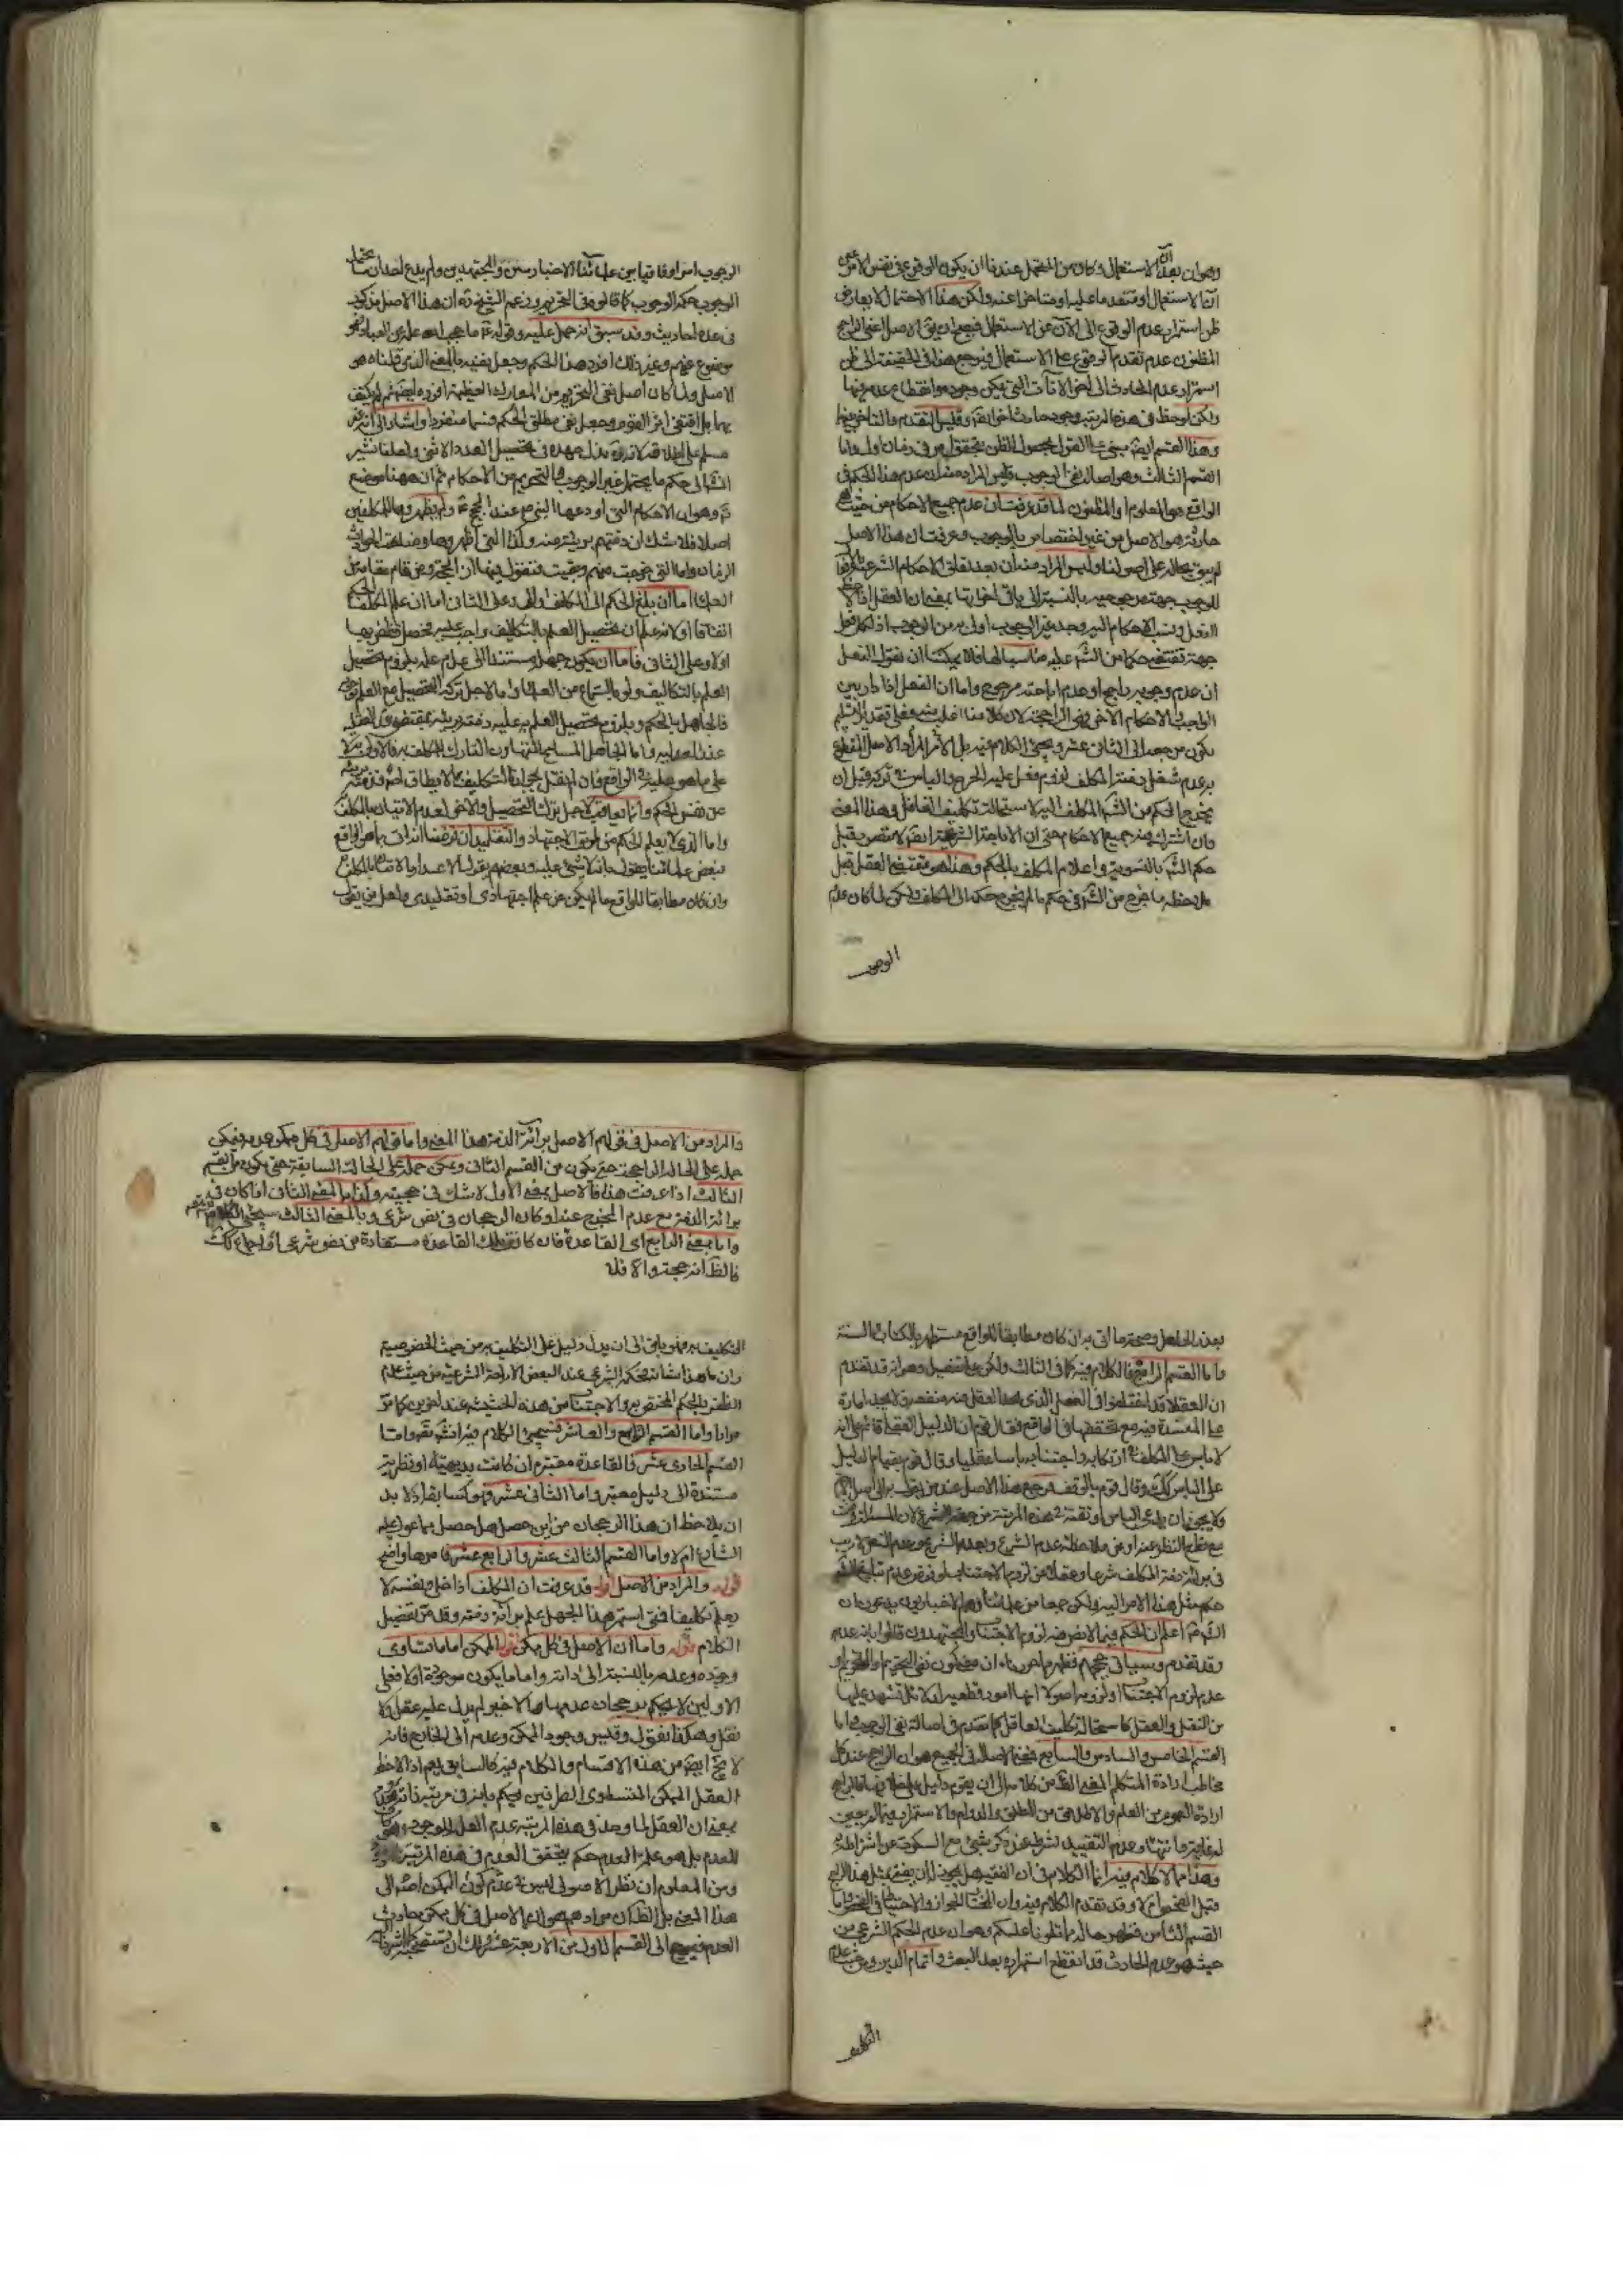 وهو ان بعد الاستعمال وكان من المحتمل عندنا ان يكون الوقوع في نفس الامر
ان الاستعمال او متقدما عليه او متاخرا عنه ولكن هذا الاحتمال لا يعارض
ظن استمرار عدم الوقوع الى الآن عن الاستعمال فيصح ان يق الاصل اعني الراجح
المظنون عدم تقدم الوقوع على الاستعمال فيرجع هذا في الحقيقة الى ظن
استمرار عدم الحادث الى اخر الآنات التي يمكن وجوده وانقطاع عدمه فيها
ولكن لوحظ في هذه المرتبة وجود حادث اخر ايضا وقيس التقدم والتاخر بينهما
وهذا القسم ايضا مبني على القول بحصول الظن بتحقق امر في زمان اول واما
القسم الثالث وهو اصالة نفي الوجوب فليس المراد منه ان عدم هذا الحكم في
الواقع هو المعلوم او المظنون لما قد عرفت ان عدم جميع الاحكام من حيث هي
حادثة هو الاصل من غير اختصاص بالوجوب وعرفت ان هذا الاصل
لم يبق بحاله على اصولنا وليس المراد منه ان بعد تعلق الاحكام الشرعية
للوجوب جهة مرجوحية بالنسبة الى باقي اخواتها بمعنى ان العقل اذا لاحظ
الفعل ونسب الاحكام اليه وجد غير الوجوب اولى به من الوجوب اذ لكل فعل
جهة تقتضي حكما من الشرع عليه مناسبا لها فلا يمكننا ان نقول الفعل
ان عدم وجوبه راجح او عدم اباحته مرجوح واما ان الفعل اذا دار بين
الواجب والاحكام الاخر فهي الراجحة لان كلامنا اغلب
يكون مرجعه الى الثاني عشر ويجئ الكلام فيه بل الامر المراد الاصل المقطوع
به عدم شغل ذمة المكلف لزوم فعل عليه الحرج والباس في تركه قبل ان
يخرج الحكم من الشرع للمكلف اليه لاستحالة تكليف الغافل وهذا المعنى
وان اشترك فيه جميع الاحكام حتى ان الاباحة الشرعية ايضا لا متصور قبل
حكم الشرع بالتسوية واعلام المكلف بالحكم وهذا هو مقتضى العقل قبل
ملاحظة ما خرج من الشرع في حكم ما لم يخرج حكمه الى المكلف ولكن لما كان عدم
الوجوب
الوجوب امرا وفاقيا بين علمائنا الاخباريين والمجتهدين ولم يدع احد ان ما يحتمل
الوجوب حكمه الوجوب كما قالوا في التحريم وزعم الشيخ ره ان هذا الاصل مذكور
في عدة احاديث وقد سبق انه حمل عليه قوله ع ما حجب الله علمه عن العباد فهو
موضوع عنهم وغير ذلك افرد هذا الحكم وجعل نفيه بالمعنى الذي قلناه هو
الاصل ولما كان اصل نفي التحريم من المعارك العظيمة افرده ايضا ثم لم يكتف
بهما بل اقتفى اثر القوم وجعل نفي مطلق الحكم قسما منفردا واشار الى انه غير
مسلم على اطلاقه لانه ره بذل جهده في تحصيل العدد الاثني ولعلنا نشير
انش الى حكم ما يحتمل غير الوجوب والتحريم من الاحكام ثم ان ههنا موضع
تم وهو ان الاحكام التي اودعها النبي ص عند الحجج ع ولم يظهروها للمكلفين
اصلا فلا شك ان ذمتهم بريئة منه وكذا التي اظهروها وضاعت لحوادث
الزمان واما التي خرجت منهم وبقيت فنقول فيها ان الخروج عن مقام
الحكم اما ان بلغ الحكم الى المكلف او لا وعلى الثاني اما ان علم المكلف بالحكم
اتفاقا او لانه علم ان تحصيل العلم بالتكاليف واجب عليه فحصل فظفر بها
او لا وعلى الثاني فاما ان يكون جهله مستندا الى عدم علمه بلزوم تحصيل
العلم بالتكاليف ولو بالسماع من العلماء واما لاجل تركه التحصيل مع العلم
فالجاهل بالحكم وبلزوم تحصيل العلم به عليه ذمته بريئة بمقتضى
عنده واما الجاهل المسامح المتهاون التارك
على ما هو عليه في الواقع فان لم نقل بجواز التكليف بما لا يطاق
عن نفس الحكم وانما يعاقب لاجل ترك التحصيل والاخر لعدم الاتيان بالمكلف
واما الذي لا يعلم الحكم من طرق الاجتهاد والتقليد ان فرضنا انه اتى بما هو الواقع
فبعض علمائنا يقول بانه لا شيء عليه وبعضهم يقول لا اعتداد بالاتيان بالمكلف به
وان كان مطابقا للواقع ما لم يكن عن علم اجتهادي او تقليدي ولعل من يقول
بعذر الجاهل وصحة ما اتى به ان كان مطابقا للواقع مستظهر بالكتاب والسنة
واما القسم الرابع فالكلام فيه كما في الثالث ولكن على تفصيل وهو انه قد تقدم
ان العقلاء قد اختلفوا في الفعل الذي يعد العقل فيه منفعة ولا يجد امارة
على المفسدة فيه مع تحققها في الواقع فقال قوم ان الدليل العقلي قائم على انه
لا باس على المكلف في ارتكابه واجتنابه باسا عقليا وقال قوم بقيام الدليل
على الباس كك وقال قوم بالوقف فمرجع هذا الاصل عند من يقول به الى اصل
ولا يجوز ان يدعي الباس او نفيه في هذه المرتبة من جهة الشرع لان المسئلة فرضت
مع قطع النظر عنه او عن ملاحظة عدم الشرع وبعد الشرع وعدم النص لا ريب
في برائة ذمة المكلف شرعا وعقلا عن لزوم الاجتناب لو فرض عدم تبليغ الشرع
حكم مثل هذا الامر اليه ولكن جمعا من علمائنا وهم الاخباريون يدعون ان
الشرع قد اعلم ان الحكم فيما لا نص فيه لزوم الاجتناب والمجتهدون قالوا بانه عدم
وقد تقدم وسياتي حججهم فظهر مما حررناه ان مضمون نفي التحريم او التحريم او
عدم لزوم الاجتناب او لزومه اصولا انها امور قطعية ادلة تشهد عليها
من النقل والعقل كاستحالة تكليف الغافل كما تقدم في اصالة نفي الوجوب واما
القسم الخامس والسادس والسابع فمعنى الاصل في الجميع هو ان الراجح عند كل
مخاطب ارادة المتكلم المعنى الظ من كلامه الى ان يقوم دليل على خلافها فالراجح
ارادة العموم من العام والاطلاق من المطلق والدوام والاستمرار فيما لم يعين
له غاية وانتهاء وعدم التقييد بشرط عند ذكر شيء مع السكوت عن اشتراطه
وهذا مما لا كلام فيه انما الكلام في ان الفقيه هل يجوز له ان يفتي بمثل هذا الراجح
قبل الفحص ام لا وقد تقدم الكلام فيه وان المختار الجواز والاحتياط في الفحص واما
القسم الثامن فظهر حاله مما تلونا عليكم وهو ان عدم الحكم الشرعي من
حيث هو عدم الحادث قد انقطع استمراره بعد البعث واتمام الدين ومن حيث عدم
التكليف
والمراد من الاصل في قولهم الاصل برائة الذمة هذا المعنى واما قولهم الاصل في كل ممكن عدمه فيمكن
حمله على الحالة الراجحة حتى يكون من القسم الثاني ويمكن حمله على الحالة السابقة حتى يكون من القسم
الثالث اذا عرفت هذا فالاصل بمعنى الاول لا شك في حجيته وكذا بالمعنى الثاني اذا كان في
برائة الذمة مع عدم المخرج عنه او كان الرجحان في نص شرعي وبالمعنى الثالث سيجئ الكلام
واما بمعنى الرابع اي القاعدة فان كانت تلك القاعدة مستفادة من نص شرعي او اجماع كك
فالظ انه حجة والا فلا
التكليف به فهو باق الى ان يدل دليل على التكليف به من حيث الخصوصية
وان ما هذا شانه فحكمه الشرعي عند البعض الاباحة الشرعية من حيث عدم
الظفر بالحكم المختص به والاجتناب من هذه الحيثية عند اخرين كما مر
مرارا واما القسم التاسع والعاشر فسيجئ الكلام فيه انش تع واما
القسم الحادي عشر فالقاعدة معتبرة ان كانت بديهية او نظرية
مستندة الى دليل معتبر واما الثاني عشر فهو كسابقه اذ لا بد
ان يلاحظ ان هذا الرجحان من اين حصل هل حصل بما عول عليه
الشارع ام لا واما القسم الثالث عشر والرابع عشر فامرهما واضح
قوله والمراد من الاصل اقول قد عرفت ان المكلف اذا خلي ونفسه لا
يعلم تكليفا فمتى استمر هذا الجهل علم برائة ذمته وقد مر تفصيل
الكلام قوله واما ان الاصل في كل ممكن اقول الممكن اما ما تساوى
وجوده وعدمه بالنسبة الى ذاته واما ما يكون موجودا او لا فعلى
الاولين لا يحكم برجحان عدمها والاخير لم يدل عليه عقل ولا
نقل وهكذا نقول وقيس وجود الممكن وعدمه الى الخارج فانه
لا يخ ايضا من هذه الاقسام والكلام فيه كالسابق نعم اذا لاحظ
العقل الممكن المتساوي الطرفين يحكم بانه في مرتبة ذاته
بمعنى ان العقل لما وجد في هذه المرتبة عدم العلة للوجود
للعدم بل هو علة العدم حكم بتحقق العدم في هذه المرتبة
ومن المعلوم ان نظر الاصولي ليس في عدم كون الممكن اصلا الى
هذا المعنى بل الظ ان مرادهم هو ان الاصل في كل ممكن حادث
العدم فيرجع الى القسم الاول من الاربعة عشر ولك ان